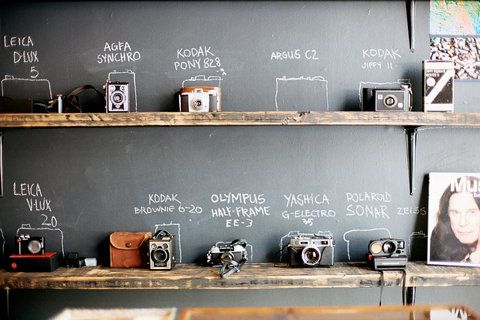 LEICA
D-LUX
5
AGFA
SYNCHRO
KODAK
PONY 828
ARGUS C2
KODAK
JIFFY 11
LEICA
V-LUX
20
KODAK
BROWNIE 6-20
OLYMPUS
HALF-FRAME
EE-3
YASHICA
G-ELECTRO
35
POLAROID
SONAR
ZEISS
Mu